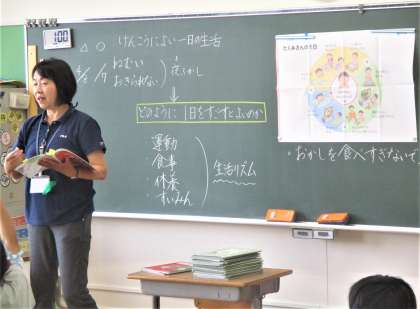 100
△ ○ けんこうによい一日の生活
ねむい
おきられない
夜ふかし
どのように1日をすごすとよいのか
・運動
・食事
・休養
・すいみん
生活リズム
たくみさんの1日
・おかしを食べすぎないで